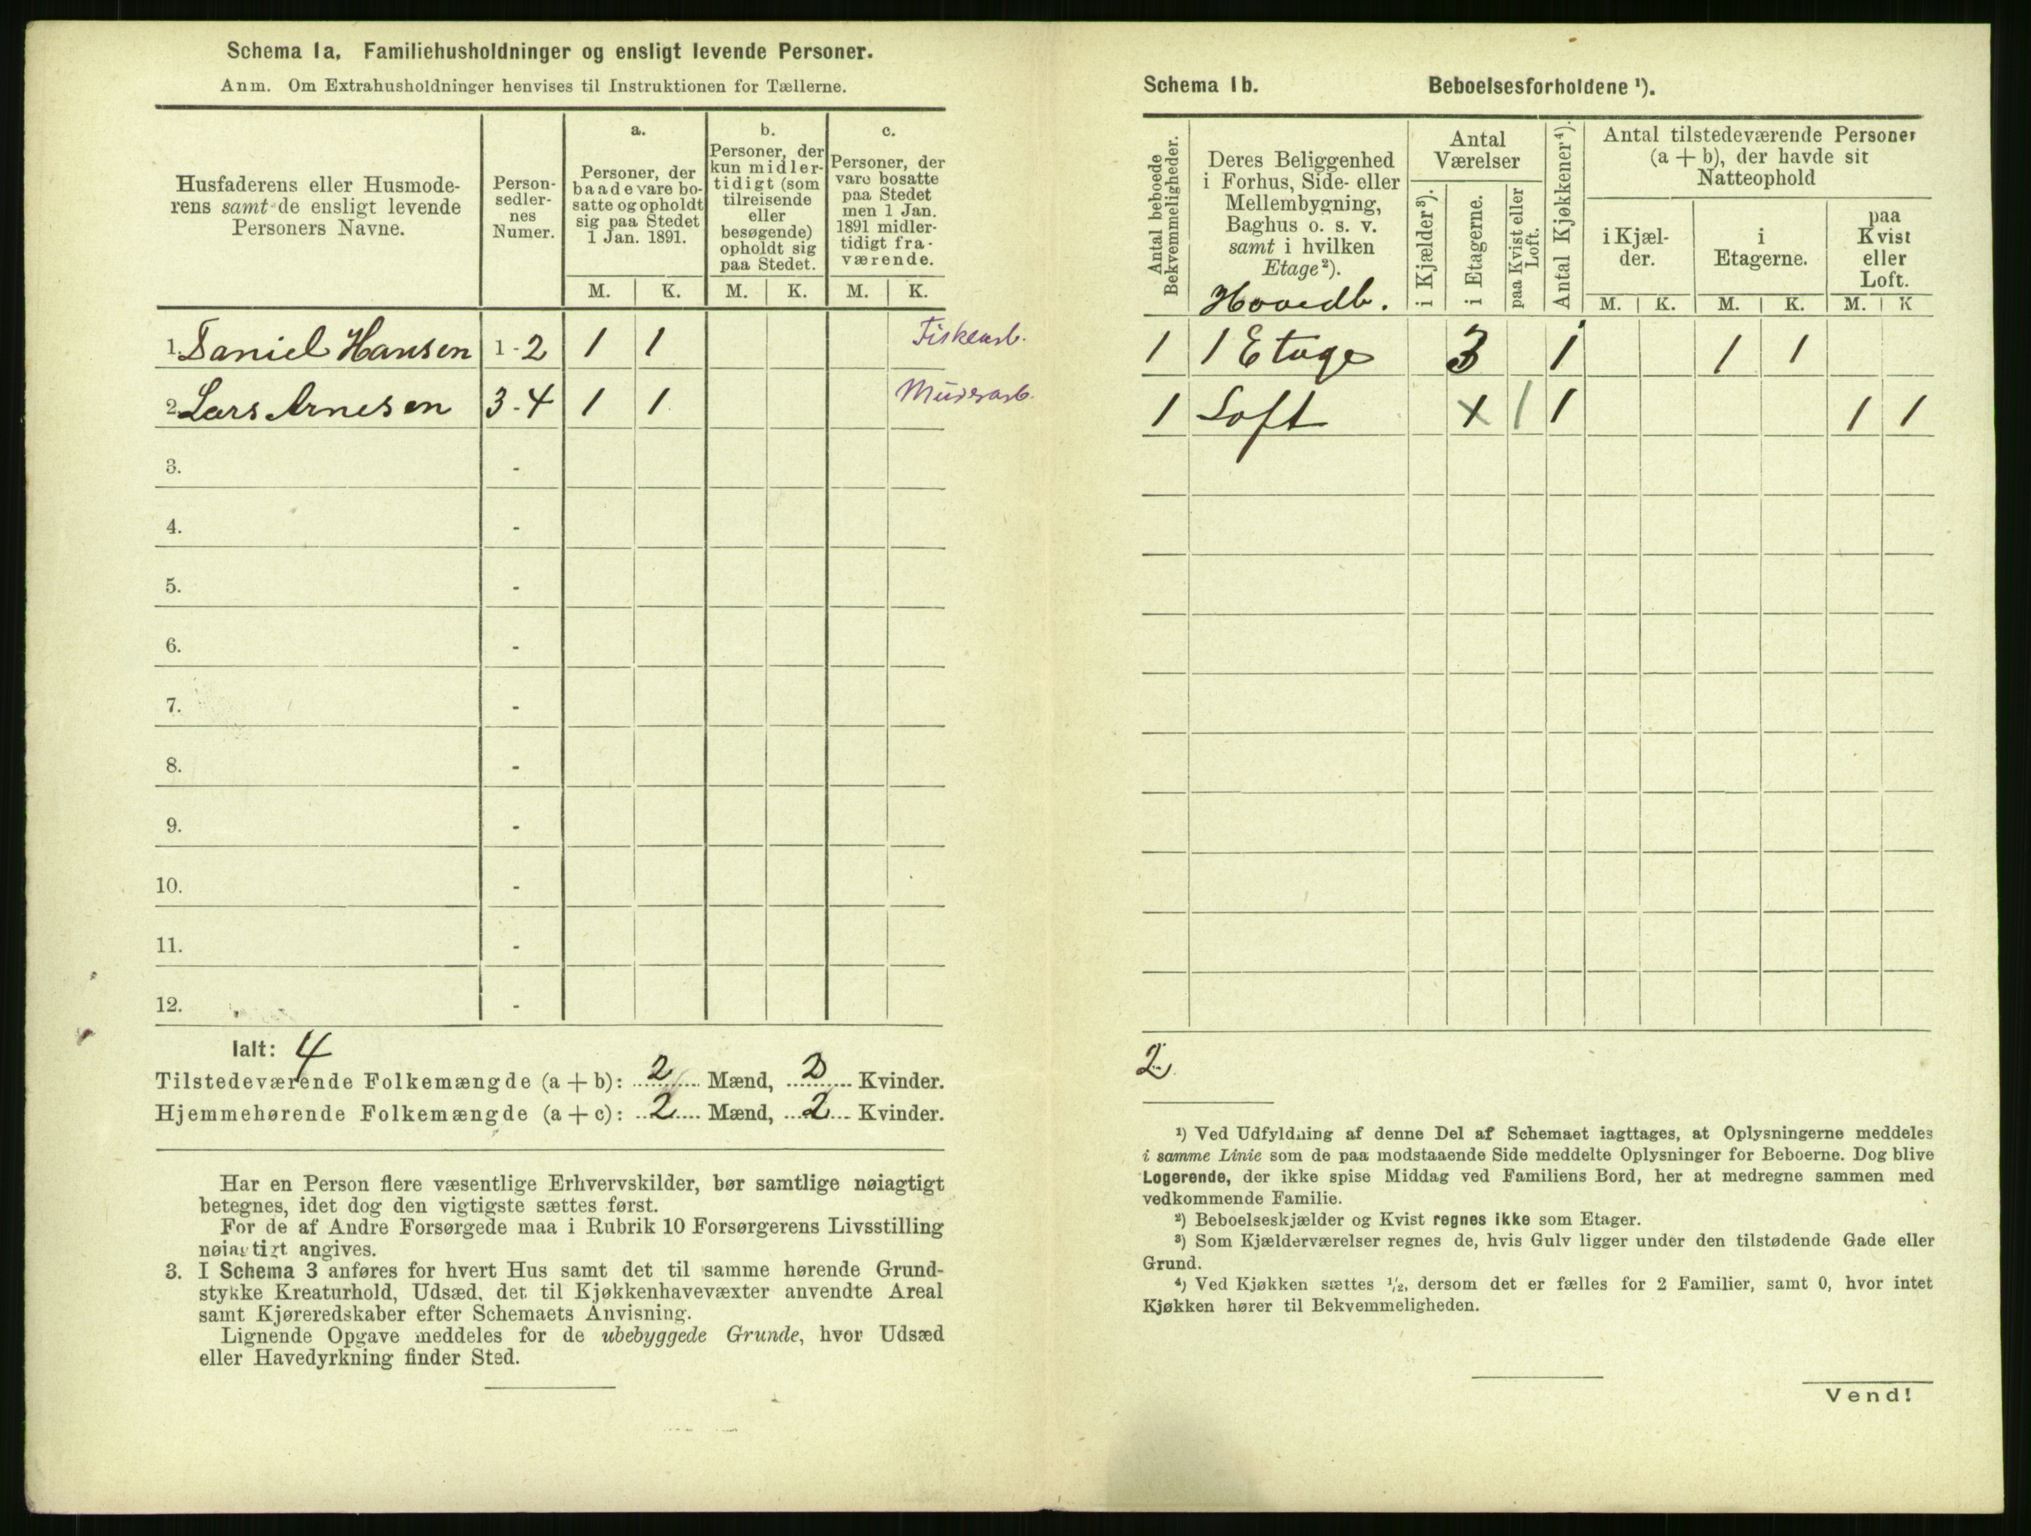 Schema 1a. Familiehusholdninger og ensligt levende Personer.
Anm. Om Extrahusholdninger henvises til Instruktionen for Tællerne.
Husfaderens eller Husmode-
rens samt de ensligt levende
Personers Navne.
Person-
sedler-
nes
Numer.
a.
Personer, der
baade vare bo-
satte og opholdt
sig paa Stedet
1 Jan. 1891.
b.
Personer, der
kun midler-
tidigt (som
tilreisende
eller
besøgende)
opholdt sig
paa Stedet.
c.
Personer, der
vare bosatte
paa Stedet
men 1 Jan.
1891 midler-
tidigt fra-
værende.
M. K. M. K. M. K.
1. Daniel Hansen 1 - 2 1 1 Fiskearb.
2. Lars Arnesen 3 - 4 1 1 Murerarb.
3. -
4. -
5. -
6. -
7. -
8. -
9. -
10. -
11. -
12. -
Ialt: 4
Tilstedeværende Folkemængde (a + b): 2 Mænd, 2 Kvinder.
Hjemmehørende Folkemængde (a + c): 2 Mænd, 2 Kvinder.
Har en Person flere væsentlige Erhvervskilder, bør samtlige nøiagtigt
betegnes, idet dog den vigtigste sættes først.
For de af Andre Forsørgede maa i Rubrik 10 Forsørgerens Livsstilling
nøiagtigt angives.
3. I Schema 3 anføres for hvert Hus samt det til samme hørende Grund-
stykke Kreaturhold, Udsæd, det til Kjøkkenhavevæxter anvendte Areal
samt Kjøreredskaber efter Schemaets Anvisning.
Lignende Opgave meddeles for de ubebyggede Grunde, hvor Udsæd
eller Havedyrkning finder Sted.
Schema 1b. Beboelsesforholdene ¹).
Antal beboede
Bekvemmeligheder.
Deres Beliggenhed
i Forhus, Side- eller
Mellembygning,
Baghus o. s. v.
samt i hvilken
Etage²).
Hovedb.
Antal
Værelser
i Kjælder³).
i Etagerne.
paa Kvist eller
Loft.
Antal Kjøkkener⁴).
Antal tilstedeværende Personer
(a + b), der havde sit
Natteophold
i Kjæl-
der.
i
Etagerne.
paa
Kvist
eller
Loft.
M. K. M. K. M. K
1 1 Etage 3 1 1 1
1 Loft x 1 1 1 1
2
¹) Ved Udfyldning af denne Del af Schemaet iagttages, at Oplysningerne meddeles
i samme Linie som de paa modstaaende Side meddelte Oplysninger for Beboerne. Dog blive
Logerende, der ikke spise Middag ved Familiens Bord, her at medregne sammen med
vedkommende Familie.
²) Beboelseskjælder og Kvist regnes ikke som Etager.
³) Som Kjælderværelser regnes de, hvis Gulv ligger under den tilstødende Gade eller
Grund.
⁴) Ved Kjøkken sættes ¹/₂, dersom det er fælles for 2 Familier, samt 0, hvor intet
Kjøkken hører til Bekvemmeligheden.
Vend!